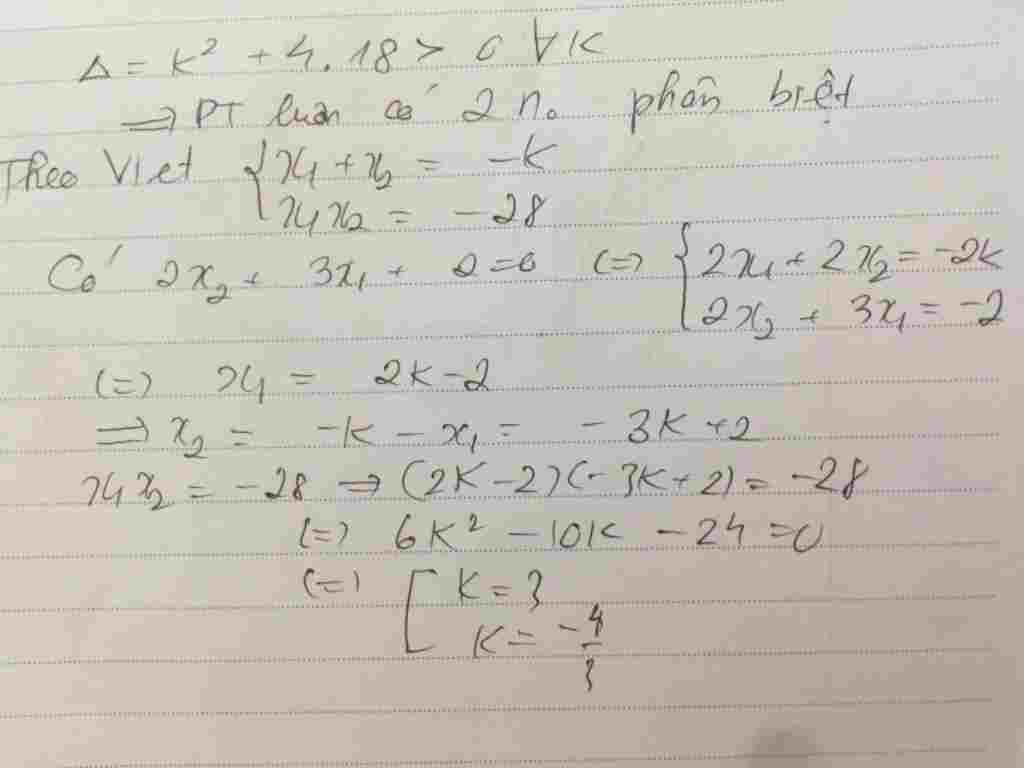 Δ = k² + 4.18 > 0 ∀k
=> PT luôn có 2 no phân biệt
Theo Viet { x₁ + x₂ = -k
x₁x₂ = -28
Có 2x₂ + 3x₁ + 2 = 0 (=) { 2x₁ + 2x₂ = -2k
2x₂ + 3x₁ = -2
(=) x₁ = 2k - 2
=> x₂ = -k - x₁ = -3k + 2
x₁x₂ = -28 => (2k - 2)(-3k + 2) = -28
(=) 6k² - 10k - 24 = 0
(=) [ k = 3
k = -4/3